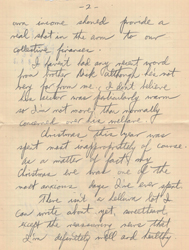 - 2 -
own income should provide a
real shot in the arm to our
collective finances.
I haven't had any recent word
from brother Dick although he's not
very far from me. I don't believe
his sector was particularly warm
so I'm not more than normally
concerned over his welfare
Christmas this year was
spent most inappropriately of course.
As a matter of fact my
Christmas eve was one of the
most anxious days I've ever spent.
There isn't a helluva lot I
can write about yet, sweetheart
except the reassuring news that
I'm definitely well and healthy